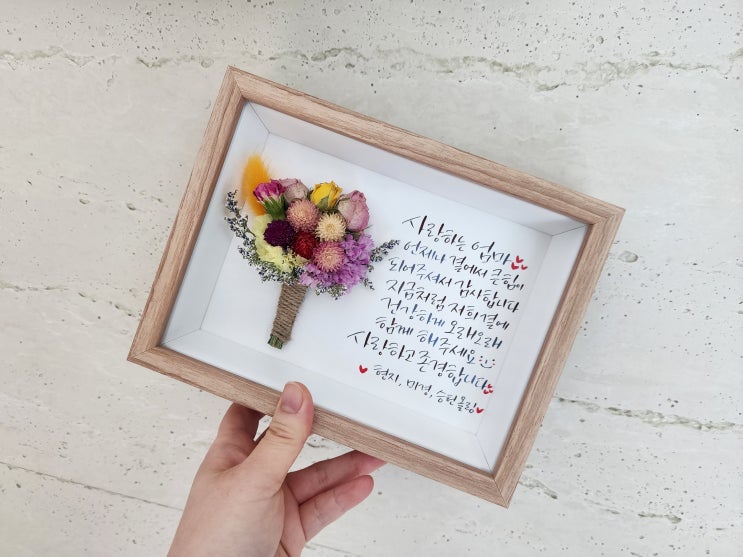 사랑하는 엄마
언제나 곁에서 큰힘이
되어주셔서 감사합니다
지금처럼 저희곁에
건강하게 오래오래
함께 해주세요
사랑하고존경합니다
현지, 미경, 승현올림